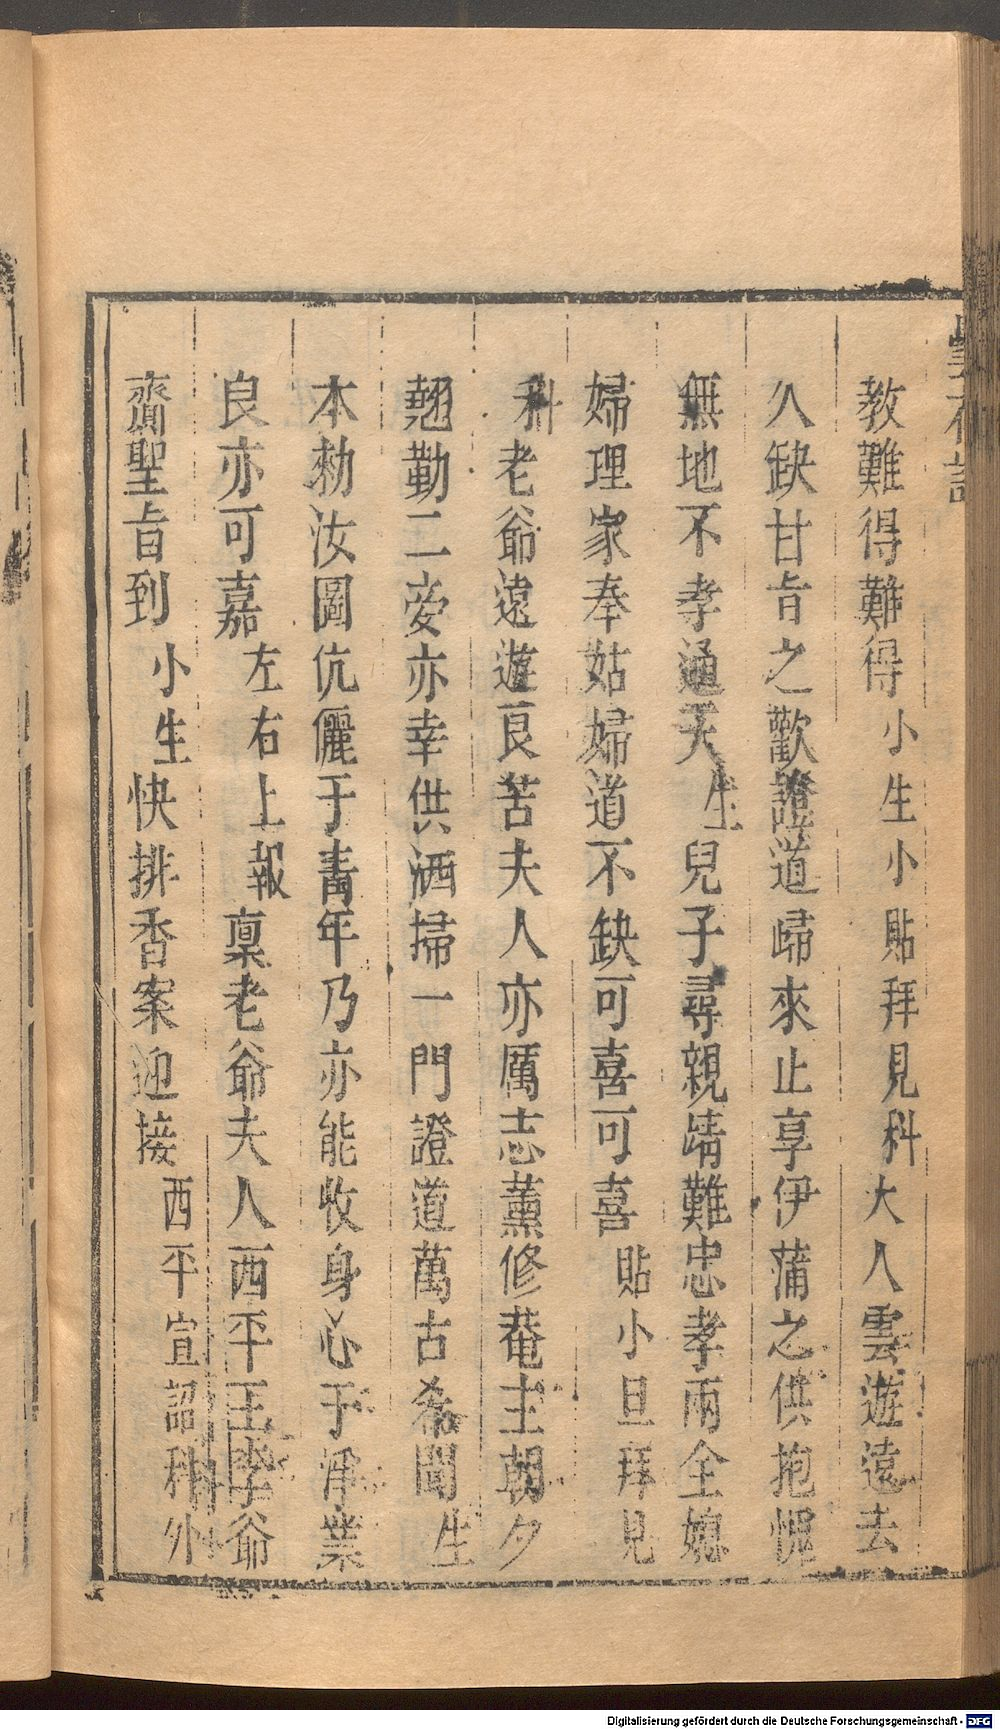 教難得難得小生小貼拜見科大人雲遊遠去
久缺甘旨之歡證道歸來止享伊蒲之供抱愧
無地不孝通天生兒子尋親靖難忠孝兩全媳
婦理家奉姑婦道不缺可喜可喜貼小旦拜見
科老爺遠遊良苦夫人亦厲志薰修菴主朝夕
翹勤二妾亦幸供洒掃一門證道萬古希聞生
本勑汝圖伉儷于青年乃亦能收身心于淨業
良亦可嘉左右上報稟老爺夫人西平王李爺
齎聖旨到小生快排香案迎接西平宣詔科外
Digitalisierung gefördert durch die Deutsche Forschungsgemeinschaft - DFG